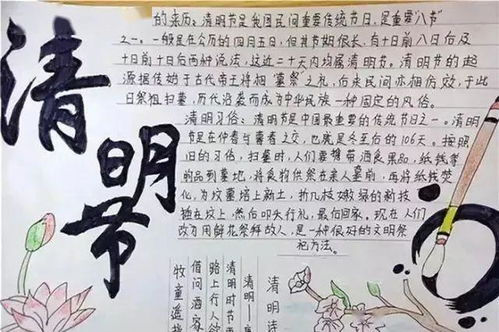 清明节
的来历：清明节是我国民间重要传统节日，是重要"八节"
之一。一般是在公历的四月五日，但其节期很长，有十日前八日后及
十日前十日后两种说法，这近二十天内均属清明节。清明节的起
源据传始于古代帝王将相"墓祭"之礼，后来民间亦相仿效，于此
日祭祖扫墓，历代沿袭而成为中华民族一种固定的风俗。
清明习俗：清明节是中国最重要的传统节日之一。清明
节是在仲春与暮春之交，也就是冬至后的106天。按照
旧的习俗，扫墓时，人们要携带酒食果品，纸钱等
物品到墓地，将食物供祭在亲人墓前，再将纸钱焚
化，为坟墓培上新土，折几枝嫩绿的新枝
插在坟上，然后叩头行礼，最后回家。现在人们
改为用鲜花祭拜故人，是一种很好的文明祭
祀方法。
清明诗
清明—
清明时节雨
路上行人欲
借问酒家
牧童遥指